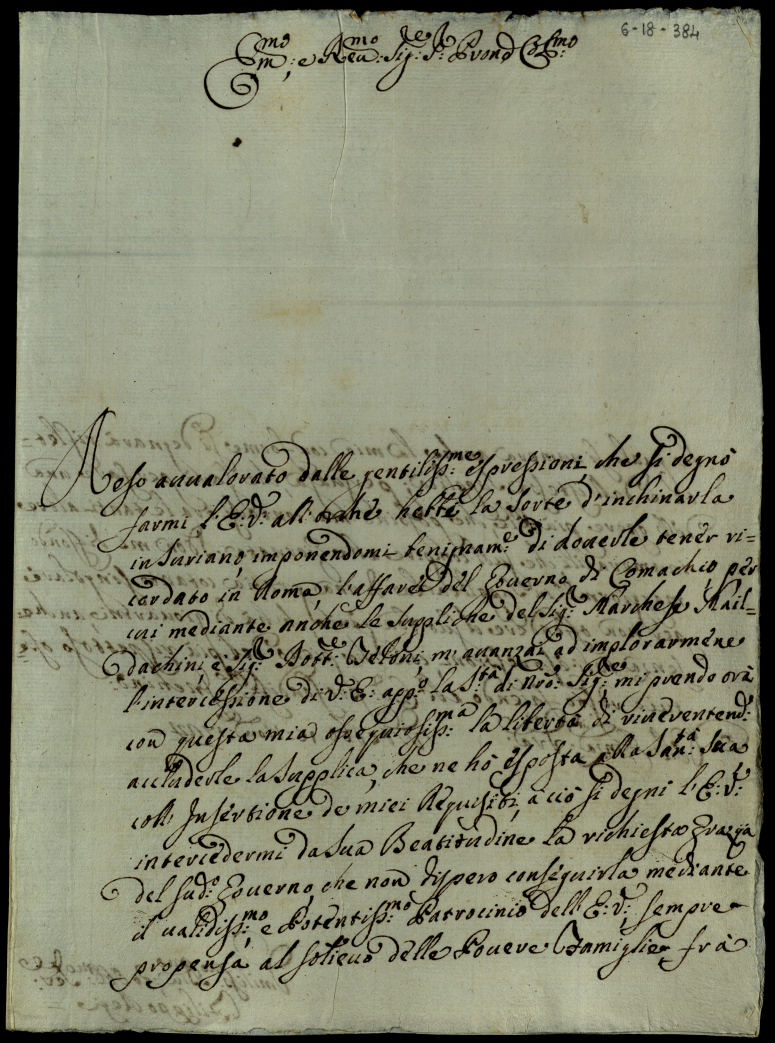 6-18-384
Em̃mo: e Reũmo: Sig:re S:r Prond Colmo:
Reso auualorato dalle gentiliss:me espressioni, che si degnò
farmi l'E: V: all'orchè hebbi la sorte d'inchinarla
in Suriano, imponendomi benignam:e di douerle tener ri=
cordato in Roma, l'affare del Gouerno di Comachio, per
cui mediante anche le suppliche del Sig:r Marchese Mail=
dachini, e Sig:r Dott:re Veloni, m'auanzai ad implorarméne
l'intercessione di V: E: app:o la S:tà di Nro: Sig:re, mi prendo ora
con questa mia ossequiosiss:ma la libertà di riuerentem:e
accluderle la supplica, che ne hò esposta alla San:tà Sua
coll' Insertione de miei Requisiti, acciò si degni l'E: V:
intercedermi da Sua Beatitudine la richiesta Grazia
del sud:o Gouerno, che non dispero conseguirla mediante
il ualidiss:mo e Potentiss:mo Patrocinio dell'E: V: sempre
propensa al solieuo delle Pouere Famiglie frà